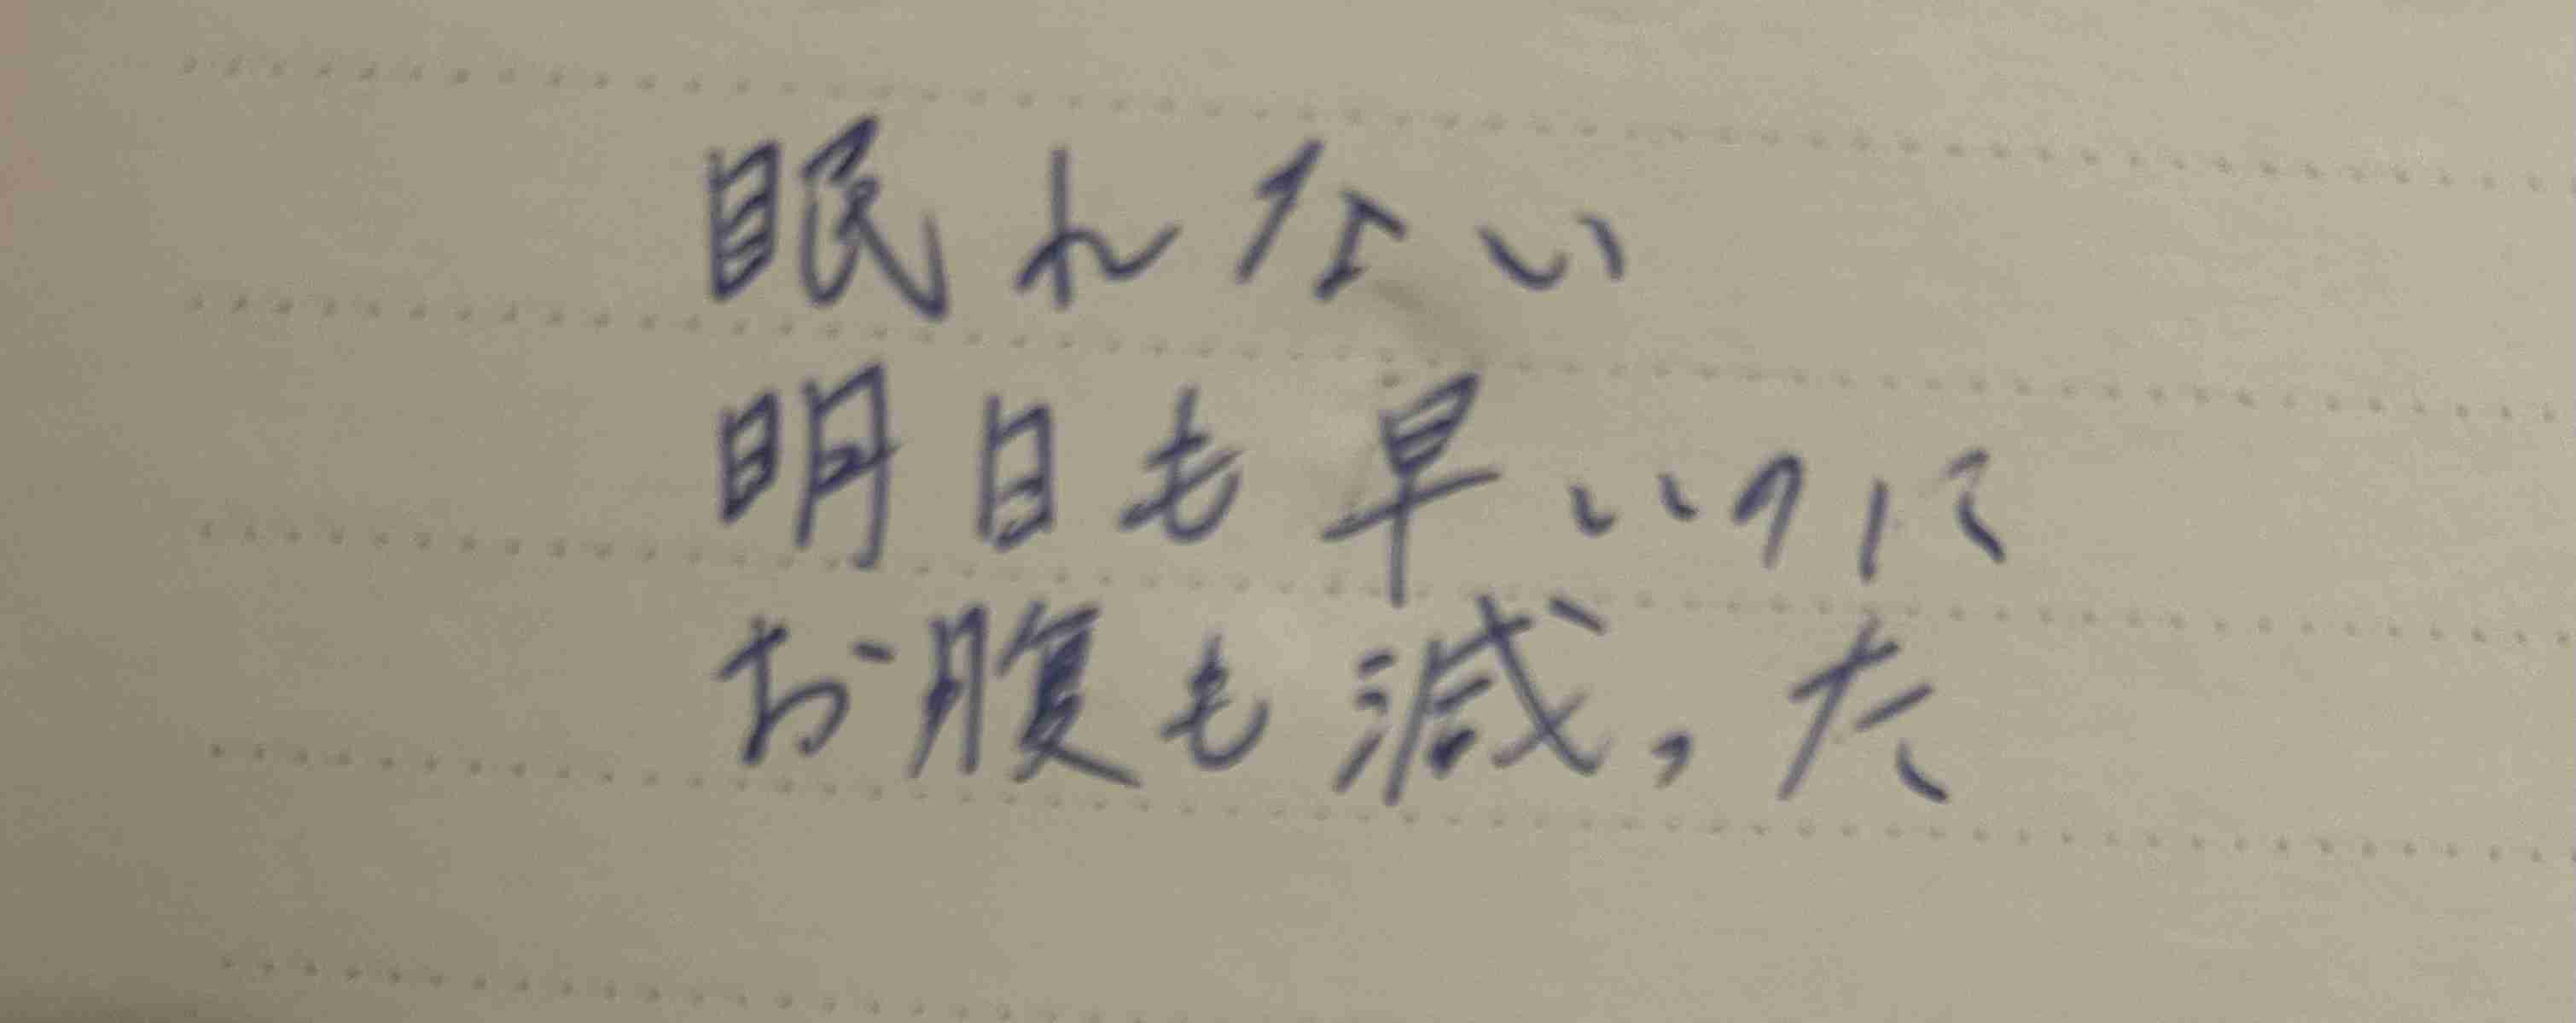 眠れない
明日も早いのに
お腹も減った